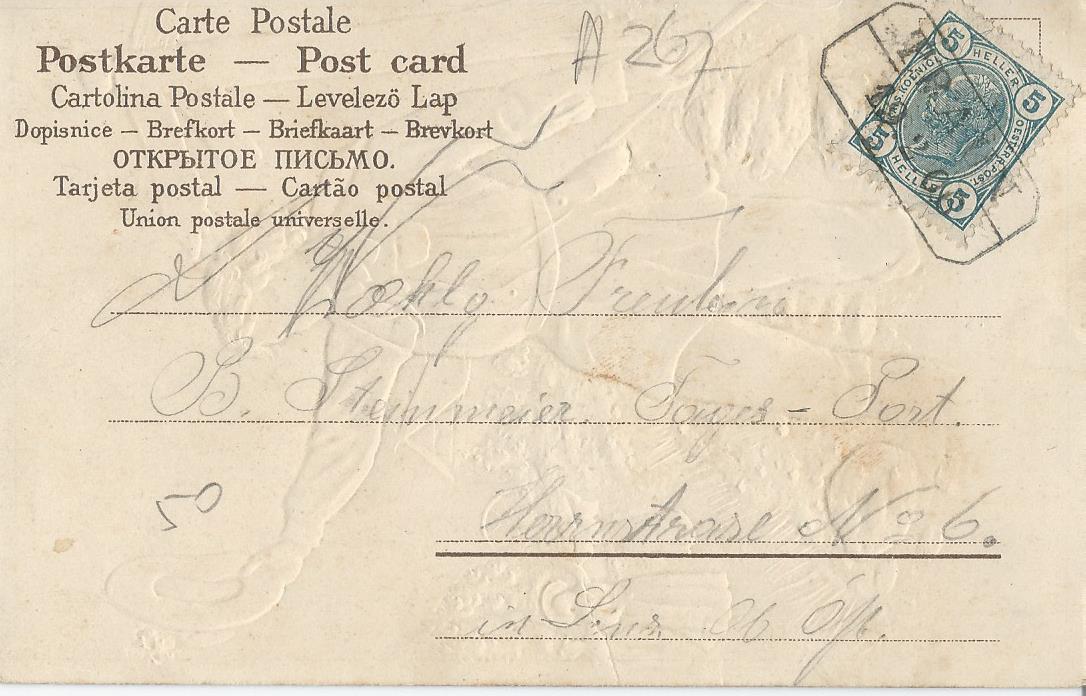 Carte Postale
Postkarte — Post card
Cartolina Postale — Levelezö Lap
Dopisnice — Brefkort — Briefkaart — Brevkort
ОТКРЫТОЕ ПИСЬМО.
Tarjeta postal — Cartão postal
Union postale universelle.
A 267
5 HELLER 5
5 HELLER 5
Freulein
B. Steinmeier. Post.
50
No 6.
in